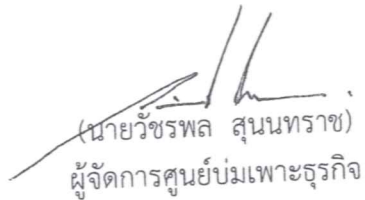 (นายวัชรพล สุนนทราช)
ผู้จัดการศูนย์บ่มเพาะธุรกิจ